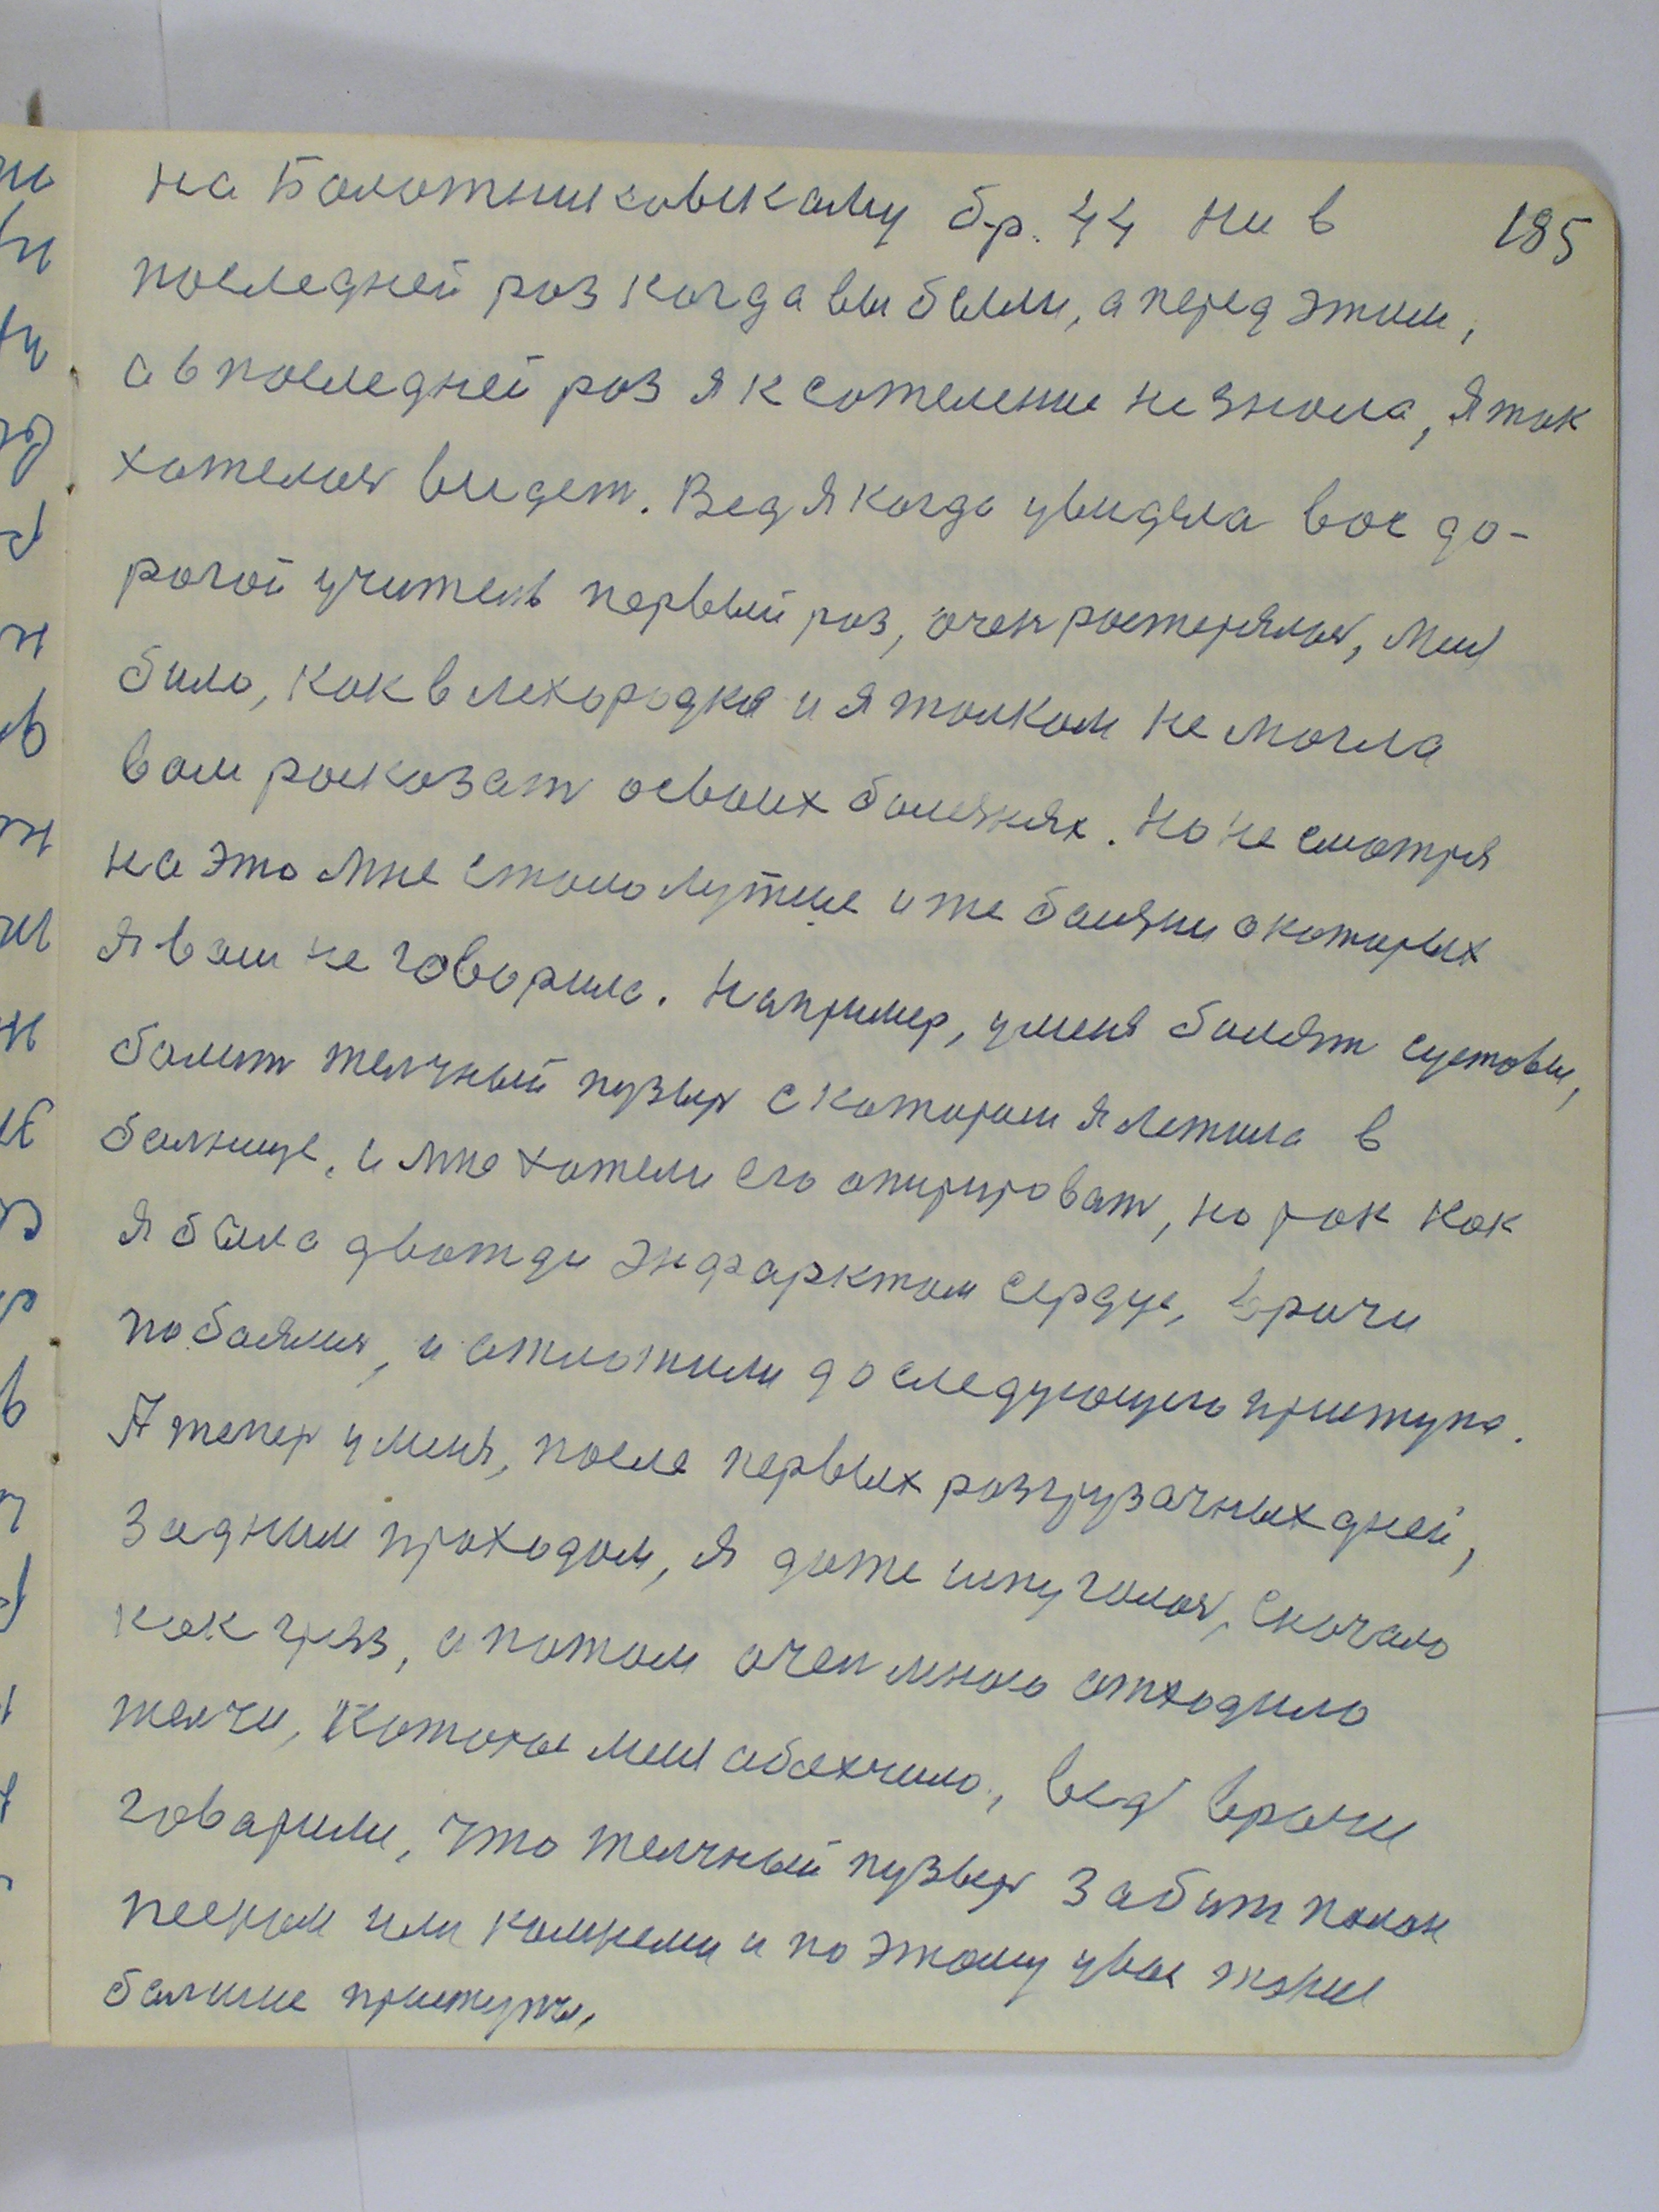 185
на Болотниковскаму бр. 44 не в
последней роз когда вы были, а перед этим,
а в последней роз я к сотелению не знола, я ток
хотелоя видет. Вед я когда увидела вос до-
рогой учитель первый роз, очен ростерялоя, мня
било, кок в лехородкя и я толком не могла
вом росказат освоих болезнях. Но не смотря
на это мне стоно лутше и те болязни окоторых
я вам не говорила. Например, уменя болят суставы,
болит желчный пузыр с которим я летила в
болнице, и мне хотели его оперироват, но ток кок
я была дважди энфарктом сердце, врачи
побоялия, и отложили до следующего приступа.
А тепер уменя, после первых розгрузачных дней,
задним проходом, я доже испуголоя, сночало
как гряз, а потом очен много отходило
желчи, Которые меня облехчило, вед врачи
говарили, что желчный пузыр забит полон
песком или комнеми и по этому увас токие
болшие приступы,